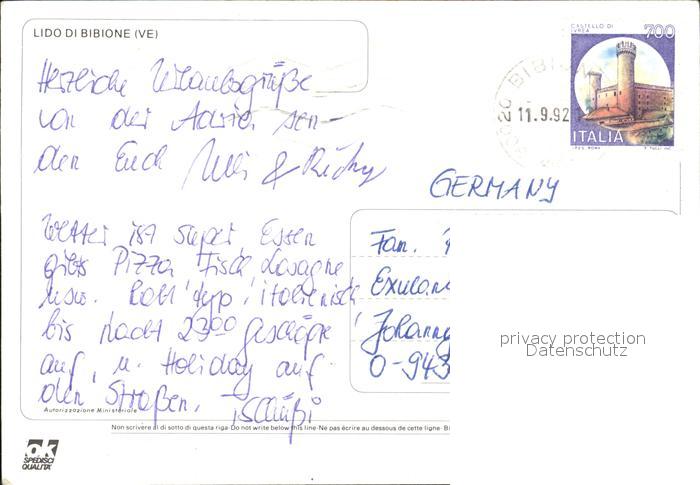 LIDO DI BIBIONE (VE)
CASTELLO DI
IVREA
700
ITALIA
11.9.92
Herzliche Urlaubsgrüße
von der Adria sen-
den Euch Ulli & Richy
GERMANY
Wetter ist super Essen
gibts Pizza Fisch Lasagne
usw. typ. italienisch
bis Nacht 23⁰⁰ Geschäfte
auf, u. Holiday auf
den Straßen. Tschüßi
Fam.
Exulan
Johann
O-943
privacy protection
Datenschutz
Autorizzazione Ministeriale
Non scrivere al di sotto di questa riga-Do not write below this line-Ne pas écrire au dessous de cette ligne-Bi
ok
SPEDISCI
QUALITA'